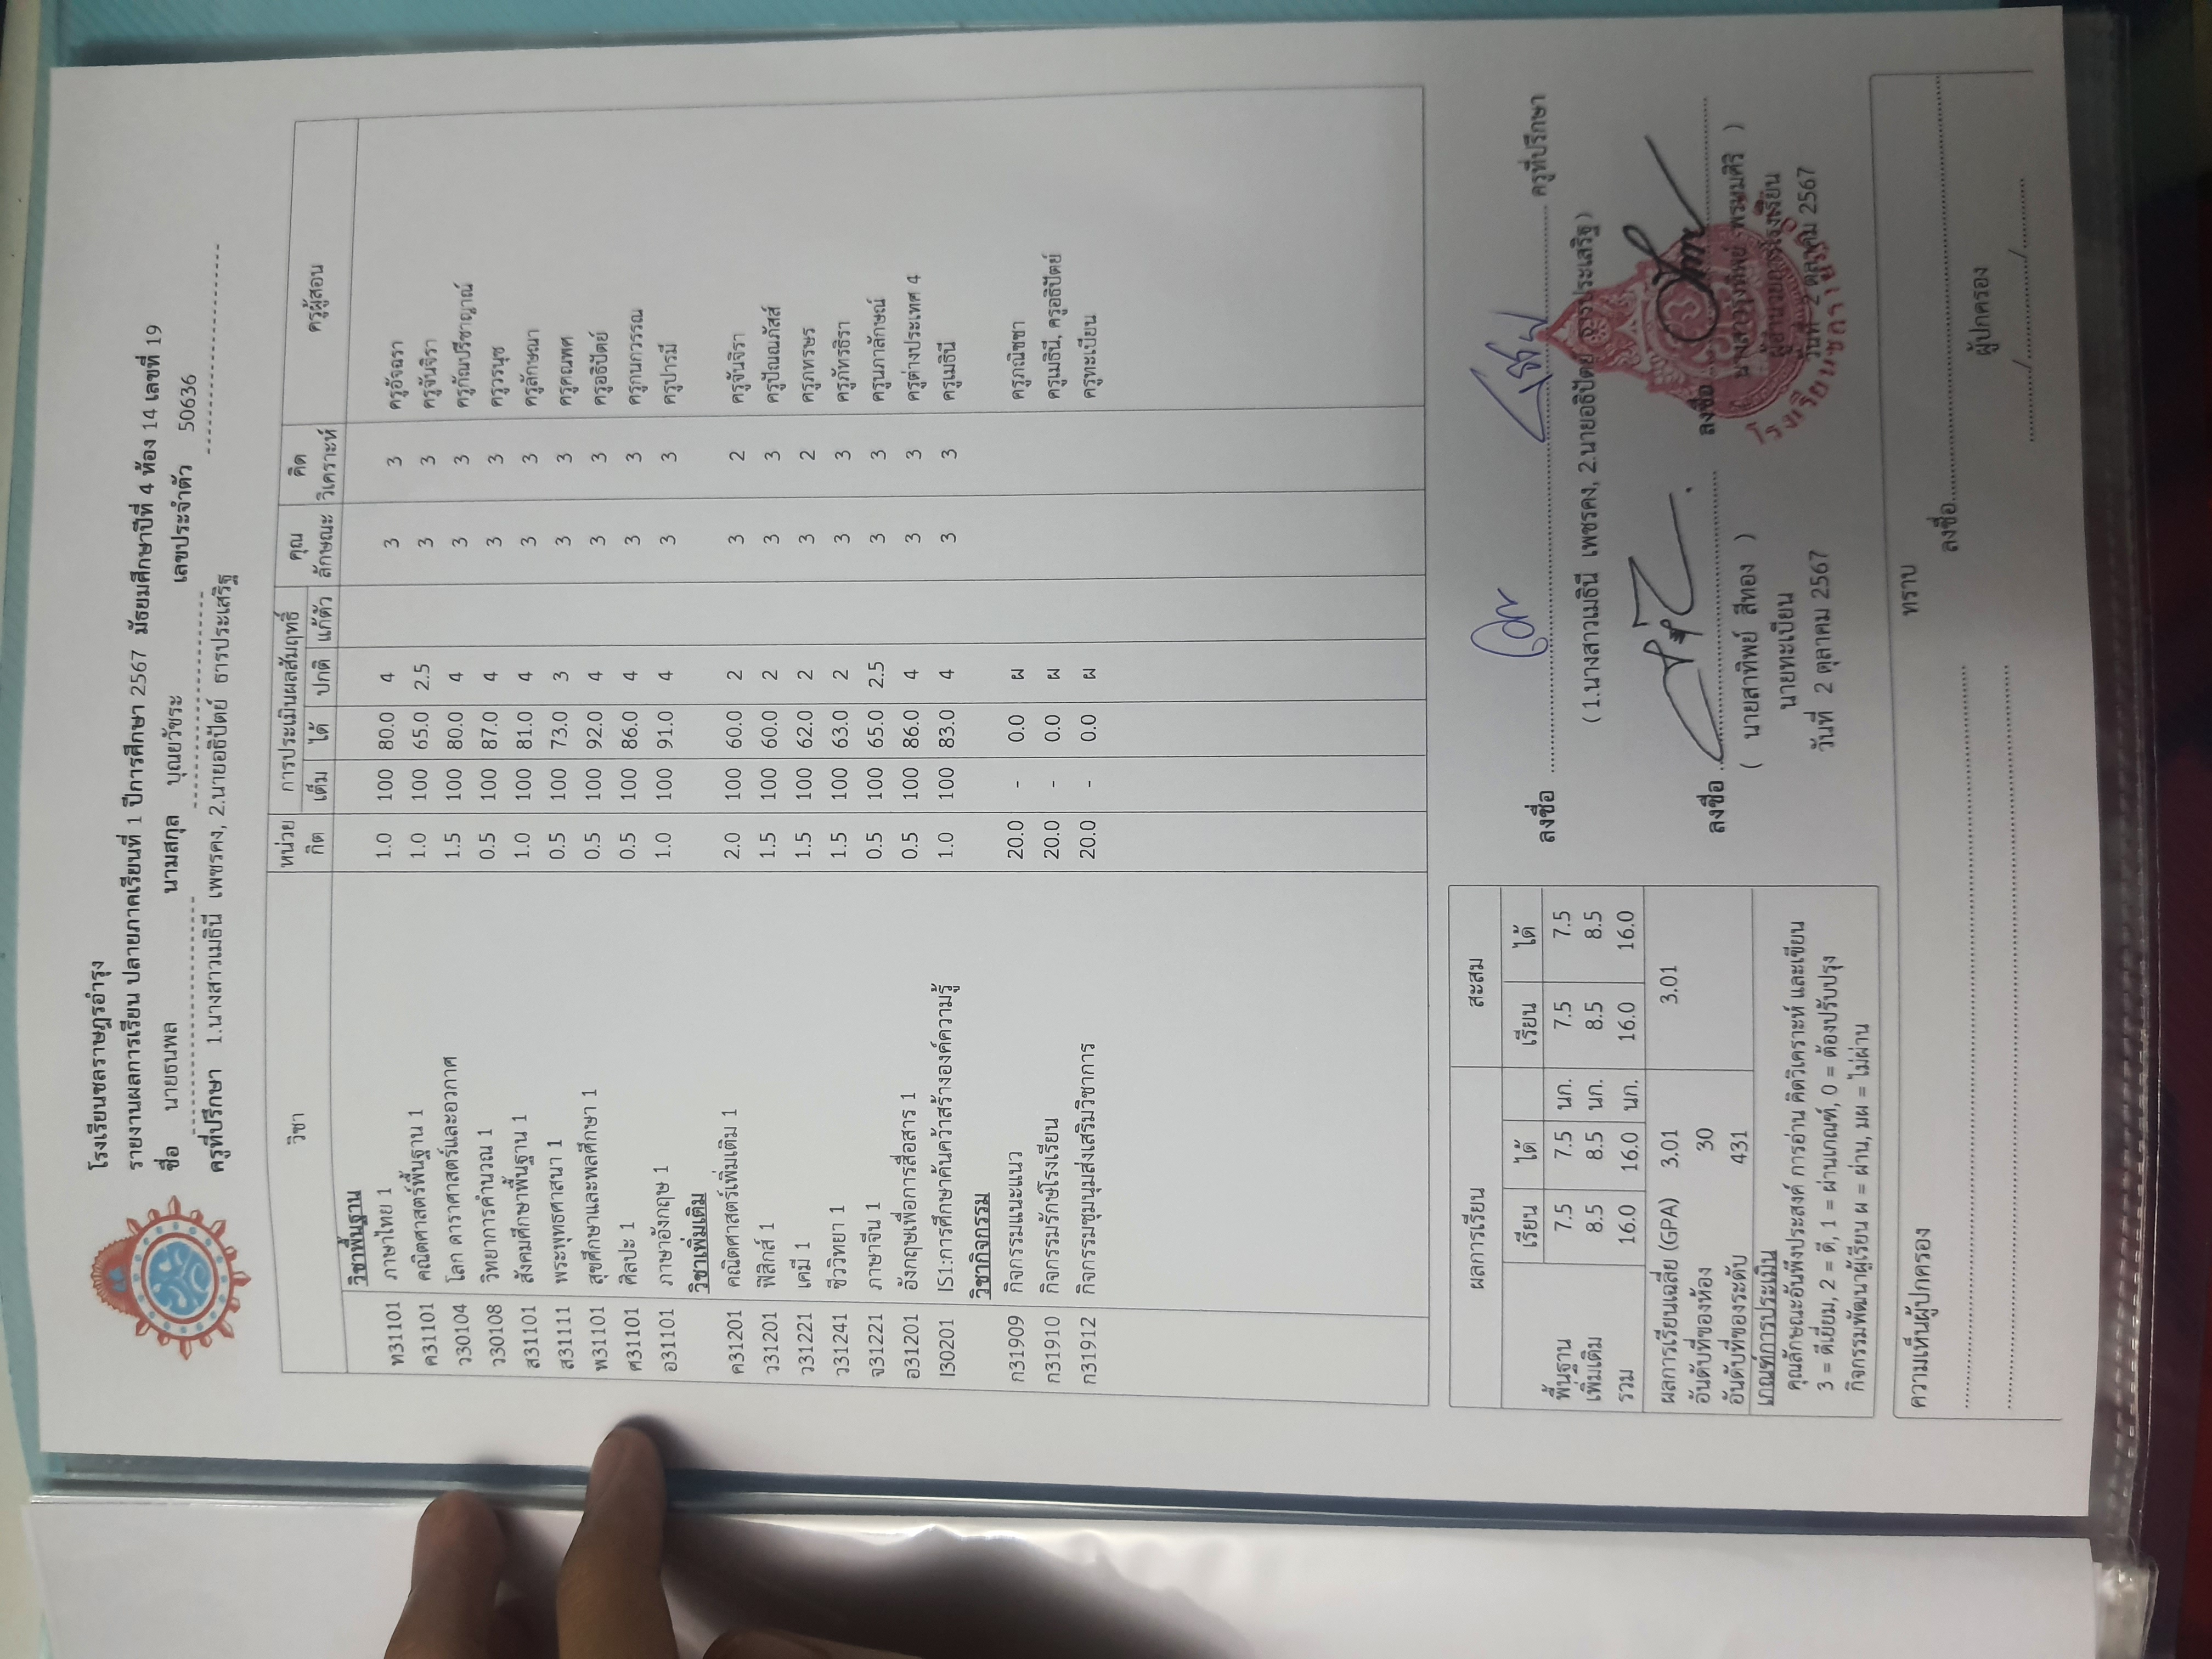 โรงเรียนชลราษฎรอำรุง
รายงานผลการเรียน ปลายภาคเรียนที่ 1 ปีการศึกษา 2567 มัธยมศึกษาปีที่ 4 ห้อง 14 เลขที่ 19
ชื่อ นายธนพล นามสกุล บุณยวัชระ เลขประจำตัว 50636
ครูที่ปรึกษา 1.นางสาวเมธินี เพชรคง, 2.นายอธิปัตย์ ธารประเสริฐ
วิชา หน่วยกิต การประเมินผลสัมฤทธิ์ คุณลักษณะ คิดวิเคราะห์ ครูผู้สอน
เต็ม ได้ ปกติ แก้ตัว
วิชาพื้นฐาน
ท31101 ภาษาไทย 1 1.0 100 80.0 4 3 3 ครูอัจฉรา
ค31101 คณิตศาสตร์พื้นฐาน 1 1.0 100 65.0 2.5 3 3 ครูจันจิรา
ว30104 โลก ดาราศาสตร์และอวกาศ 1.5 100 80.0 4 3 3 ครูกัณปรีชาญาณ์
ว30108 วิทยาการคำนวณ 1 0.5 100 87.0 4 3 3 ครูวรนุช
ส31101 สังคมศึกษาพื้นฐาน 1 1.0 100 81.0 4 3 3 ครูลักษณา
ส31111 พระพุทธศาสนา 1 0.5 100 73.0 3 3 3 ครูคณพศ
พ31101 สุขศึกษาและพลศึกษา 1 0.5 100 92.0 4 3 3 ครูอธิปัตย์
ศ31101 ศิลปะ 1 0.5 100 86.0 4 3 3 ครูกนกวรรณ
อ31101 ภาษาอังกฤษ 1 1.0 100 91.0 4 3 3 ครูปารมี
วิชาเพิ่มเติม
ค31201 คณิตศาสตร์เพิ่มเติม 1 2.0 100 60.0 2 3 2 ครูจันจิรา
ว31201 ฟิสิกส์ 1 1.5 100 60.0 2 3 3 ครูปัณณภัสส์
ว31221 เคมี 1 1.5 100 62.0 2 3 2 ครูภทรษร
ว31241 ชีววิทยา 1 1.5 100 63.0 2 3 3 ครูภัทรธิรา
จ31221 ภาษาจีน 1 0.5 100 65.0 2.5 3 3 ครูนภาลักษณ์
อ31201 อังกฤษเพื่อการสื่อสาร 1 0.5 100 86.0 4 3 3 ครูต่างประเทศ 4
I30201 IS1:การศึกษาค้นคว้าสร้างองค์ความรู้ 1.0 100 83.0 4 3 3 ครูเมธินี
วิชากิจกรรม
ก31909 กิจกรรมแนะแนว 20.0 - 0.0 ผ ครูภณิชชา
ก31910 กิจกรรมรักษ์โรงเรียน 20.0 - 0.0 ผ ครูเมธินี, ครูอธิปัตย์
ก31912 กิจกรรมชุมนุมส่งเสริมวิชาการ 20.0 - 0.0 ผ ครูทะเบียน
ผลการเรียน สะสม
เรียน ได้ เรียน ได้
พื้นฐาน 7.5 7.5 นก. 7.5 7.5
เพิ่มเติม 8.5 8.5 นก. 8.5 8.5
รวม 16.0 16.0 นก. 16.0 16.0
ผลการเรียนเฉลี่ย (GPA) 3.01 3.01
อันดับที่ของห้อง 30
อันดับที่ของระดับ 431
เกณฑ์การประเมิน
คุณลักษณะอันพึงประสงค์ การอ่าน คิดวิเคราะห์ และเขียน
3 = ดีเยี่ยม, 2 = ดี, 1 = ผ่านเกณฑ์, 0 = ต้องปรับปรุง
กิจกรรมพัฒนาผู้เรียน ผ = ผ่าน, มผ = ไม่ผ่าน
ลงชื่อ ครูที่ปรึกษา
( 1.นางสาวเมธินี เพชรคง, 2.นายอธิปัตย์ ธารประเสริฐ)
ลงชื่อ
( นายสาทิพย์ สีทอง )
นายทะเบียน
วันที่ 2 ตุลาคม 2567
ลงชื่อ
พรหมศิริ )
ผู้อำนวยการโรงเรียน
วันที่ 2 ตุลาคม 2567
ความเห็นผู้ปกครอง
ทราบ
ลงชื่อ
ผู้ปกครอง
/ /